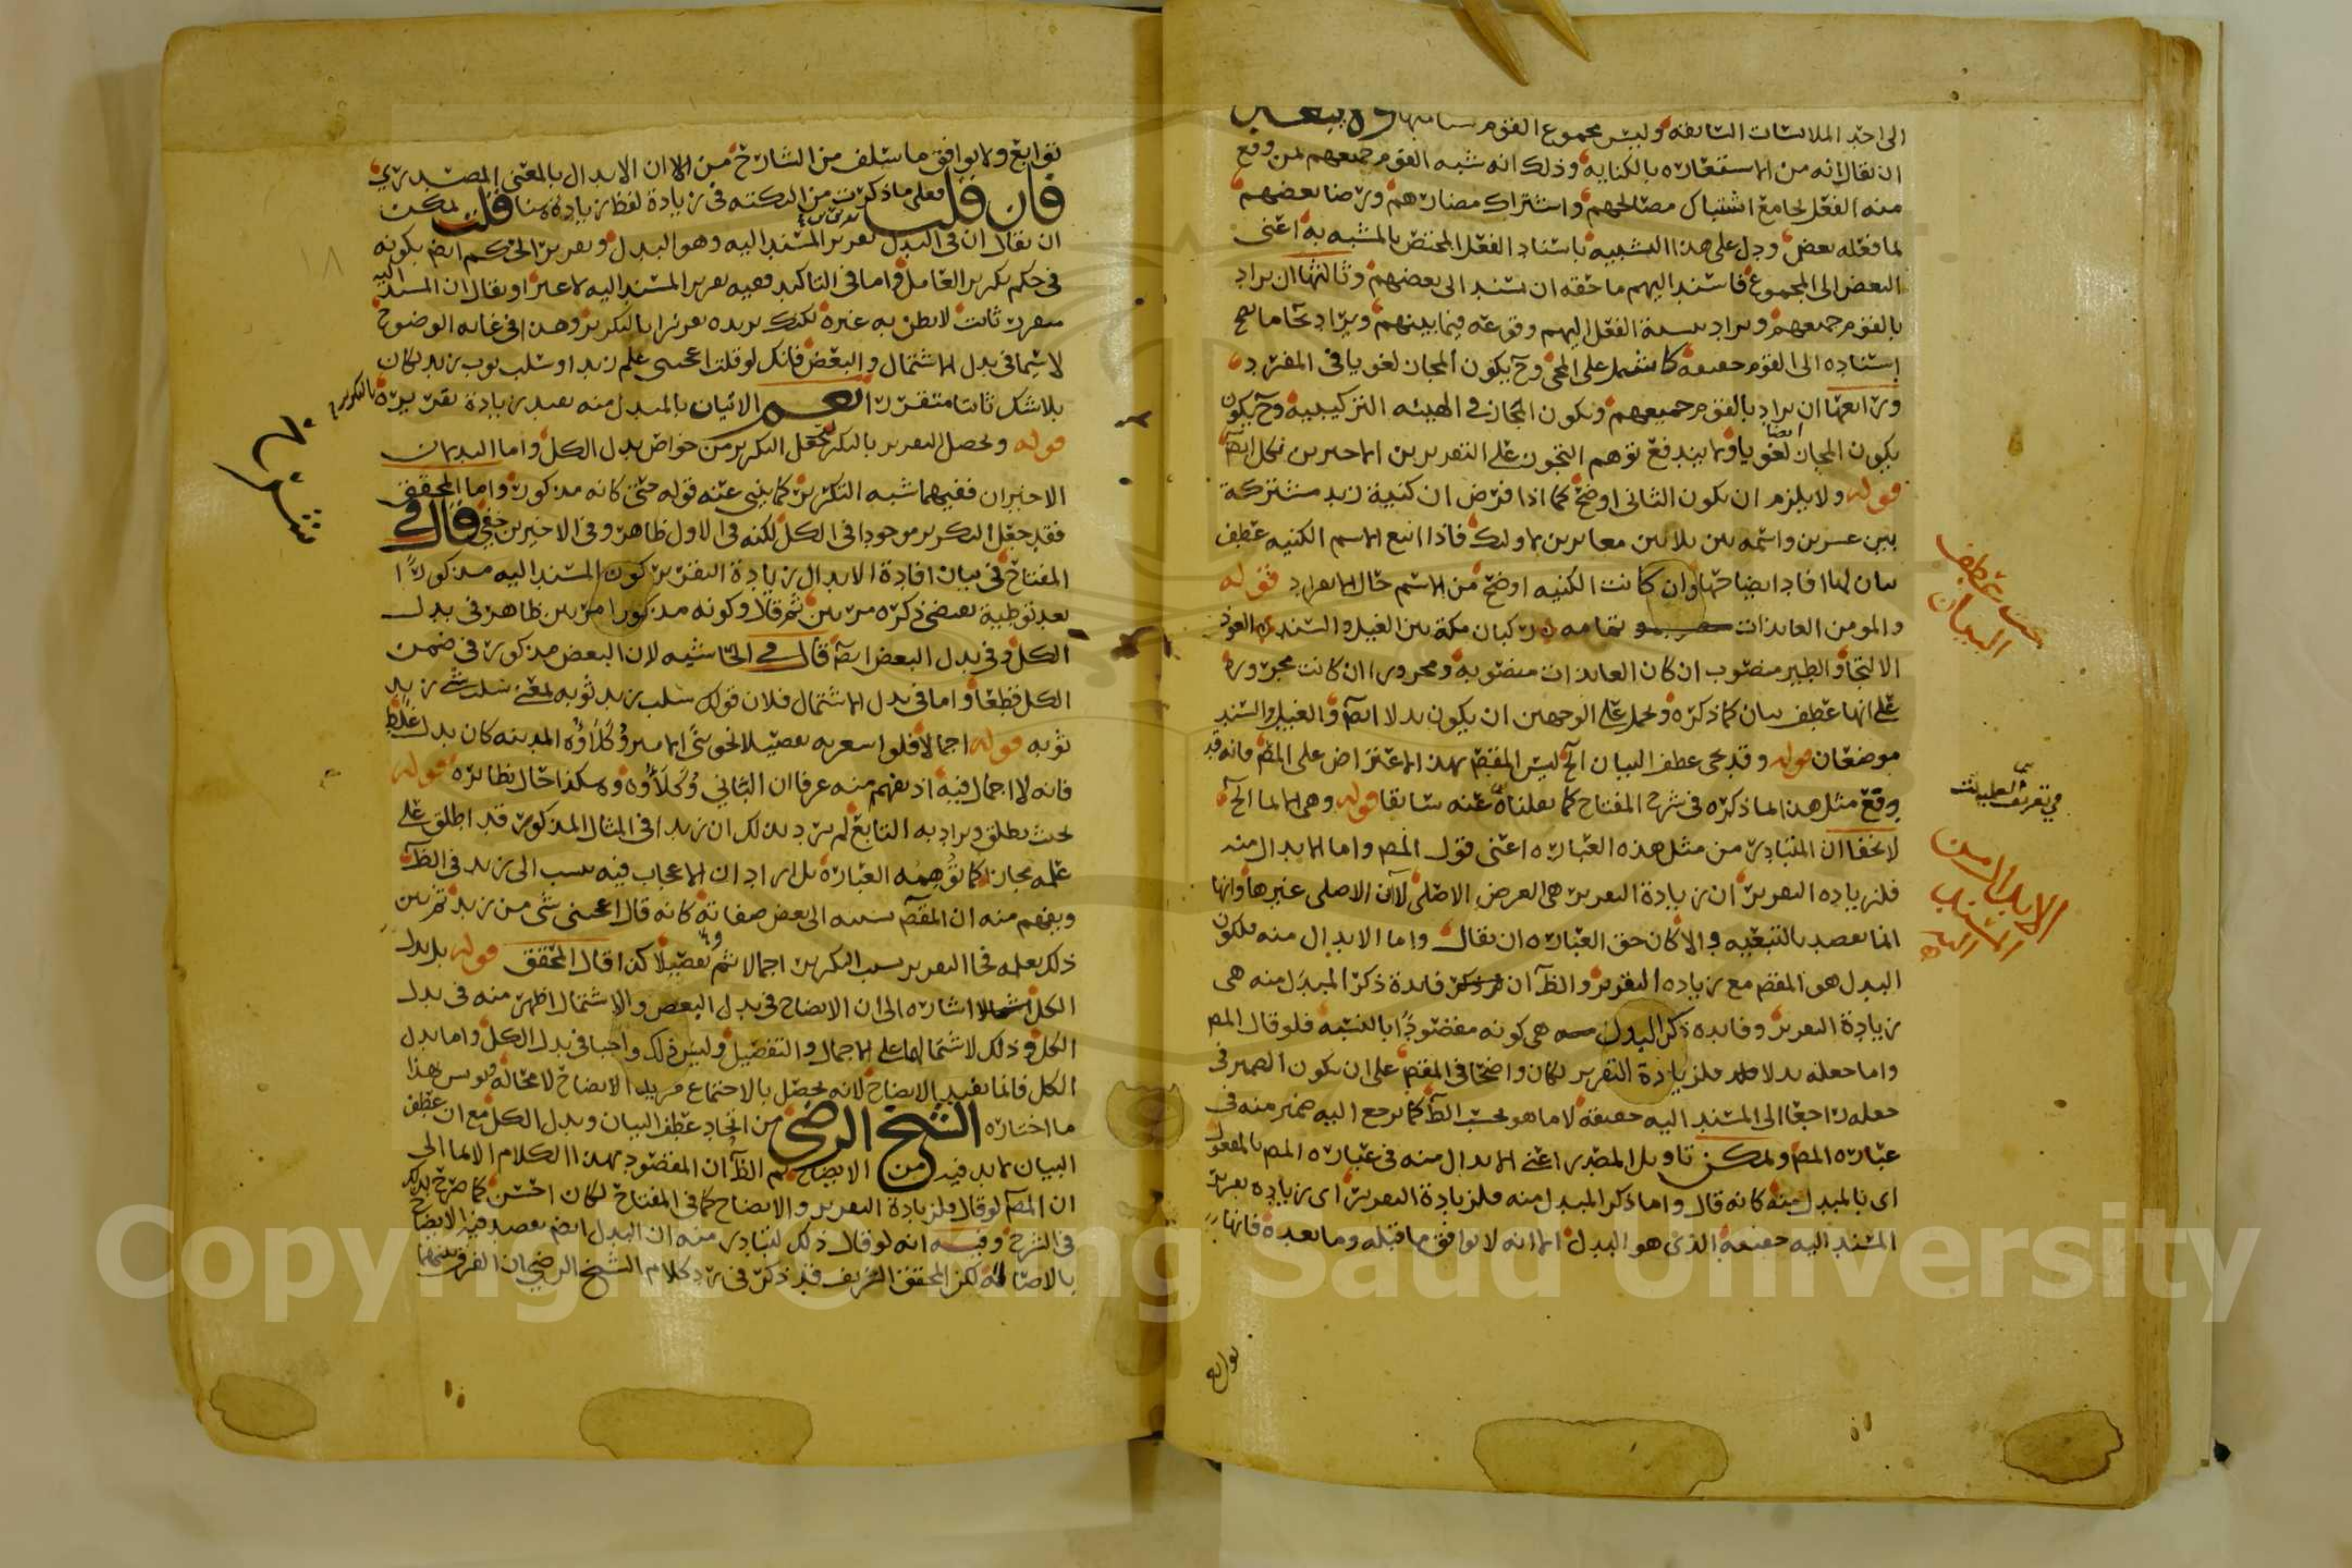 الى احد الملابسات السابقه وليس مجموع القوم
ان يقال انه من الاستعاره بالكنايه وذلك انه شبه القوم جميعهم بمن وقع
منه الفعل لجامع اشتباك مصالحهم واشتراك مضارهم ورضا بعضهم
لما فعله بعض ودل على هذا التشبيه باسناد الفعل المختص بالمشبه به اعنى
البعض الى المجموع فاسند اليهم ما حقه ان يسند الى بعضهم وثالثها ان يراد
بالقوم جميعهم ويراد بنسبة الفعل اليهم وقوعه فيما بينهم ويراد بما يصح
اسناده الى القوم حقيقه وح يكون المجاز لغويا فى المفرد
ورابعها ان يراد بالقوم جميعهم ويكون المجاز فى الهيئه التركيبيه وح يكون
يكون المجاز ايضا لغويا وما يندفع توهم التجوز على التقديرين الاخيرين بكل ايضا
قوله ولا يلزم ان يكون الثانى اوضح كما اذا فرض ان كنية زيد مشتركة
بين عشرين واسمه بين ثلاثين مغايرين لاولئك فاذا اتبع الاسم الكنيه عطف
بيان لها افاد ايضاحها وان كانت الكنيه اوضح من الاسم حال الانفراد قوله
والمومن العائذات تمامه ركبان مكة بين الغيل والسند العوذ
الالتجا والطير منصوب ان كان العائذات منصوبه ومجرور ان كانت مجروره
على انها عطف بيان كما ذكره ويحمل على الوجهين ان يكون بدلا ايضا والغيل والسند
موضعان قوله وقد يجى عطف البيان الخ ليس المقصم بهذا الاعتراض على المصم فانه قد
وقع مثل هذا لما ذكره فى شرح المفتاح كما نقلناه عنه سابقا قوله وهى الما الخ
لا يخفا ان المتبادر من مثل هذه العباره اعنى قول المصم واما الابدال منه
فلزياده التقرير ان زيادة التقرير هى الغرض الاصلى لان الاصلى غيرها وانها
انما يقصد بالتبعيه والا كان حق العباره ان يقال واما الابدال منه فلكون
البدل هو المقصم مع زياده التقرير والظ ان فايدة ذكر المبدل منه هى
زيادة التقرير وفايده ذكر البدل هى كونه مقصودا بالنسبه فلو قال المصم
واما جعله بدلا فلزيادة التقرير لكان واضحا فى المقصم على ان يكون الضمير فى
جعله راجعا الى المسند اليه حقيقه لا ما هو بحسب الظ كما يرجع اليه ضمير منه فى
عباره المصم ويمكن تاويل المصدر اعنى الابدال منه فى عباره المصم بالمفعول
اى بالمبدل منه كانه قال واما ذكر المبدل منه فلزيادة التقرير اى زياده تقرير
المسند اليه حقيقه الذى هو البدل الا انه لا يوافق ما قبله وما بعده فانها
توابع
بحث عطف
البيان
فى تعريف
الابدال من
المسند
اليه
توابع ولا يوافق ما سلف من الشارح من ان الابدال بالمعنى المصدرى
فان قلت فعلى ما ذكرت من النكته فى زيادة لفظ زيادة هنا قلت يمكن
ان يقال ان فى البدل تقرير المسند اليه وهو البدل وتقرير الحكم ايضا بكونه
فى حكم تكرير العامل واما فى التاكيد ففيه تقرير المسند اليه لا غير او يقال ان المسند اليه
متقرر ثابت لا يظن به غيره لكنك تريده تقريرا بالتكرير وهذا فى غايه الوضوح
لا سيما فى بدل الاشتمال والبعض فانك لو قلت اعجبنى علم زيد او سلب ثوب زيد لكان
بلا شك ثابتا متقررا نعم الاتيان بالمبدل منه يفيد زيادة تقريره بالتكرير
قوله ويحصل التقرير بالتكرير جعل التكرير من خواص بدل الكل واما البدلان
الاخيران ففيهما شبه التكرير كما ينبى عنه قوله حتى كانه مذكور واما المحقق
فقد جعل التكرير موجودا فى الكل لكنه فى الاول ظاهر وفى الاخيرين خفى قال فى
المفتاح فى بيان افادة الابدال زيادة التقرير كون المسند اليه مذكورا
بعد توطية يقتضى ذكره مرتين ثم قال وكونه مذكورا مرتين ظاهر فى بدل
الكل وفى بدل البعض ايضا قال فى الحاشيه لان البعض مذكور فى ضمن
الكل قطعا واما فى بدل الاشتمال فلان قولك سلب زيد ثوبه بمعنى سلب شى زيد
ثوبه قوله اجمالا فلو اسعر به تفصيلا نحو بنى الامير وكلاؤه المدينه كان بدل غلط
فانه لا اجمال فيه اذ يفهم منه عرفا ان البانى وكلاؤه وهكذا حال نظائره قوله
بحيث يطلق ويراد به التابع لم يرد بذلك ان زيدا فى المثال المذكور قد اطلق على
علمه مجازا كما توهمه العباره بل اراد ان الاعجاب فيه نسب الى زيد فى الظ
ويفهم منه ان المقصم نسبه الى بعض صفاته كانه قال اعجبنى شى من زيد ثم بين
ذلك بعلمه فجا التقرير بسبب التكرير اجمالا ثم تفصيلا كذا قال المحقق قوله بل بدل
الكل اشاره الى ان الايضاح فى بدل البعض والاشتمال اظهر منه فى بدل
الكل وذلك لاشتمالهما على الاجمال والتفصيل وليس ذلك واجبا فى بدل الكل واما بدل
الكل فانما يفيد الايضاح لانه يحصل بالاجتماع مزيد الايضاح لا محاله هذا
ما اختاره الشيخ الرضى من اتحاد عطف البيان وبدل الكل مع ان عطف
البيان لا بد فيه من الايضاح ثم الظ ان المقصود بهذا الكلام الايما الى
ان المصم لو قال فلزيادة التقرير والايضاح كما فى المفتاح لكان احسن كما صرح بذلك
فى الشرح وفيه انه لو قال ذلك لتبادر منه ان البدل ايضم يقصد فيه الايضاح
بالاصاله لكن المحقق الشريف قد ذكر فى رد كلام الشيخ الرضى ان الفرق بينهما
Copyright © King Saud University